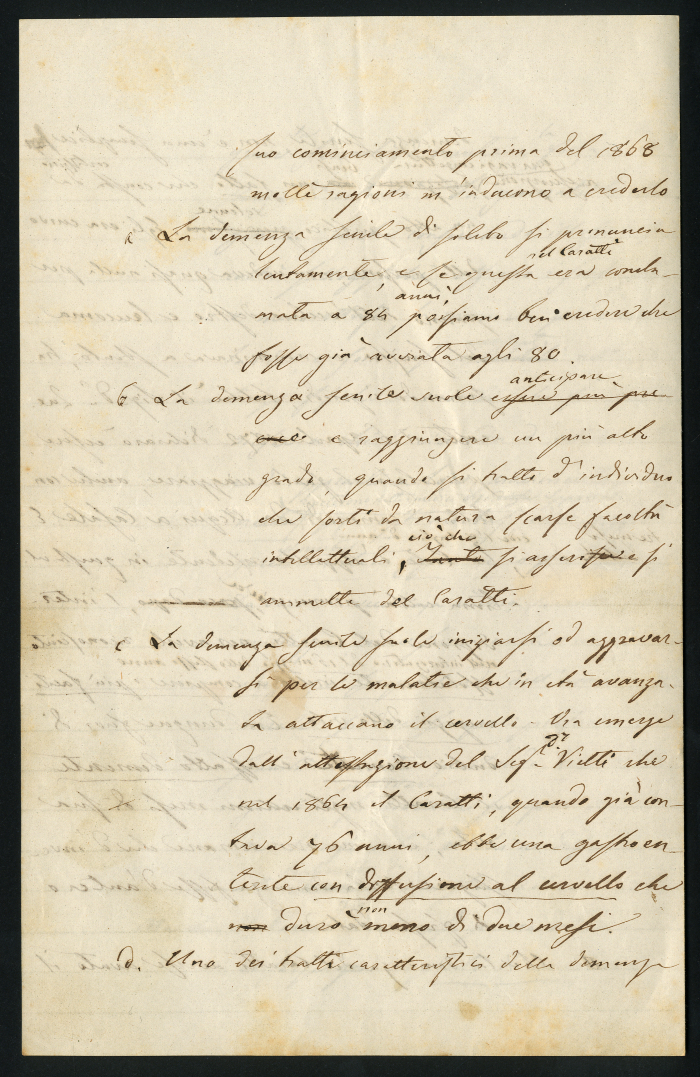 suo cominciamento prima del 1868
molte ragioni m'inducono a crederlo
a La demenza senile di solito si pronuncia
lentamente, e se questa era nel Caratti concla-
mata a 84 anni, possiamo ben credere che
fosse già avviata agli 80.
b La demenza senile suole anticipare essere più pre-
coce e raggiungere un più alto
grado, quando si tratti d'individuo
che sortì da natura scarse facoltà
intellettuali, ciò che Tanto si asserisce e si
ammette del Caratti.
c La demenza senile suole iniziarsi od aggravar-
si per le malatie che in età avanza-
ta attaccano il cervello. Ora emerge
dall'attestazione del Sig. Dr Vietti che
nel 1864 il Caratti, quando già con-
tava 76 anni, ebbe una gastroen-
terite con diffusione al cervello che
non durò non meno di due mesi.
d. Uno dei tratti caratteristici della demenza